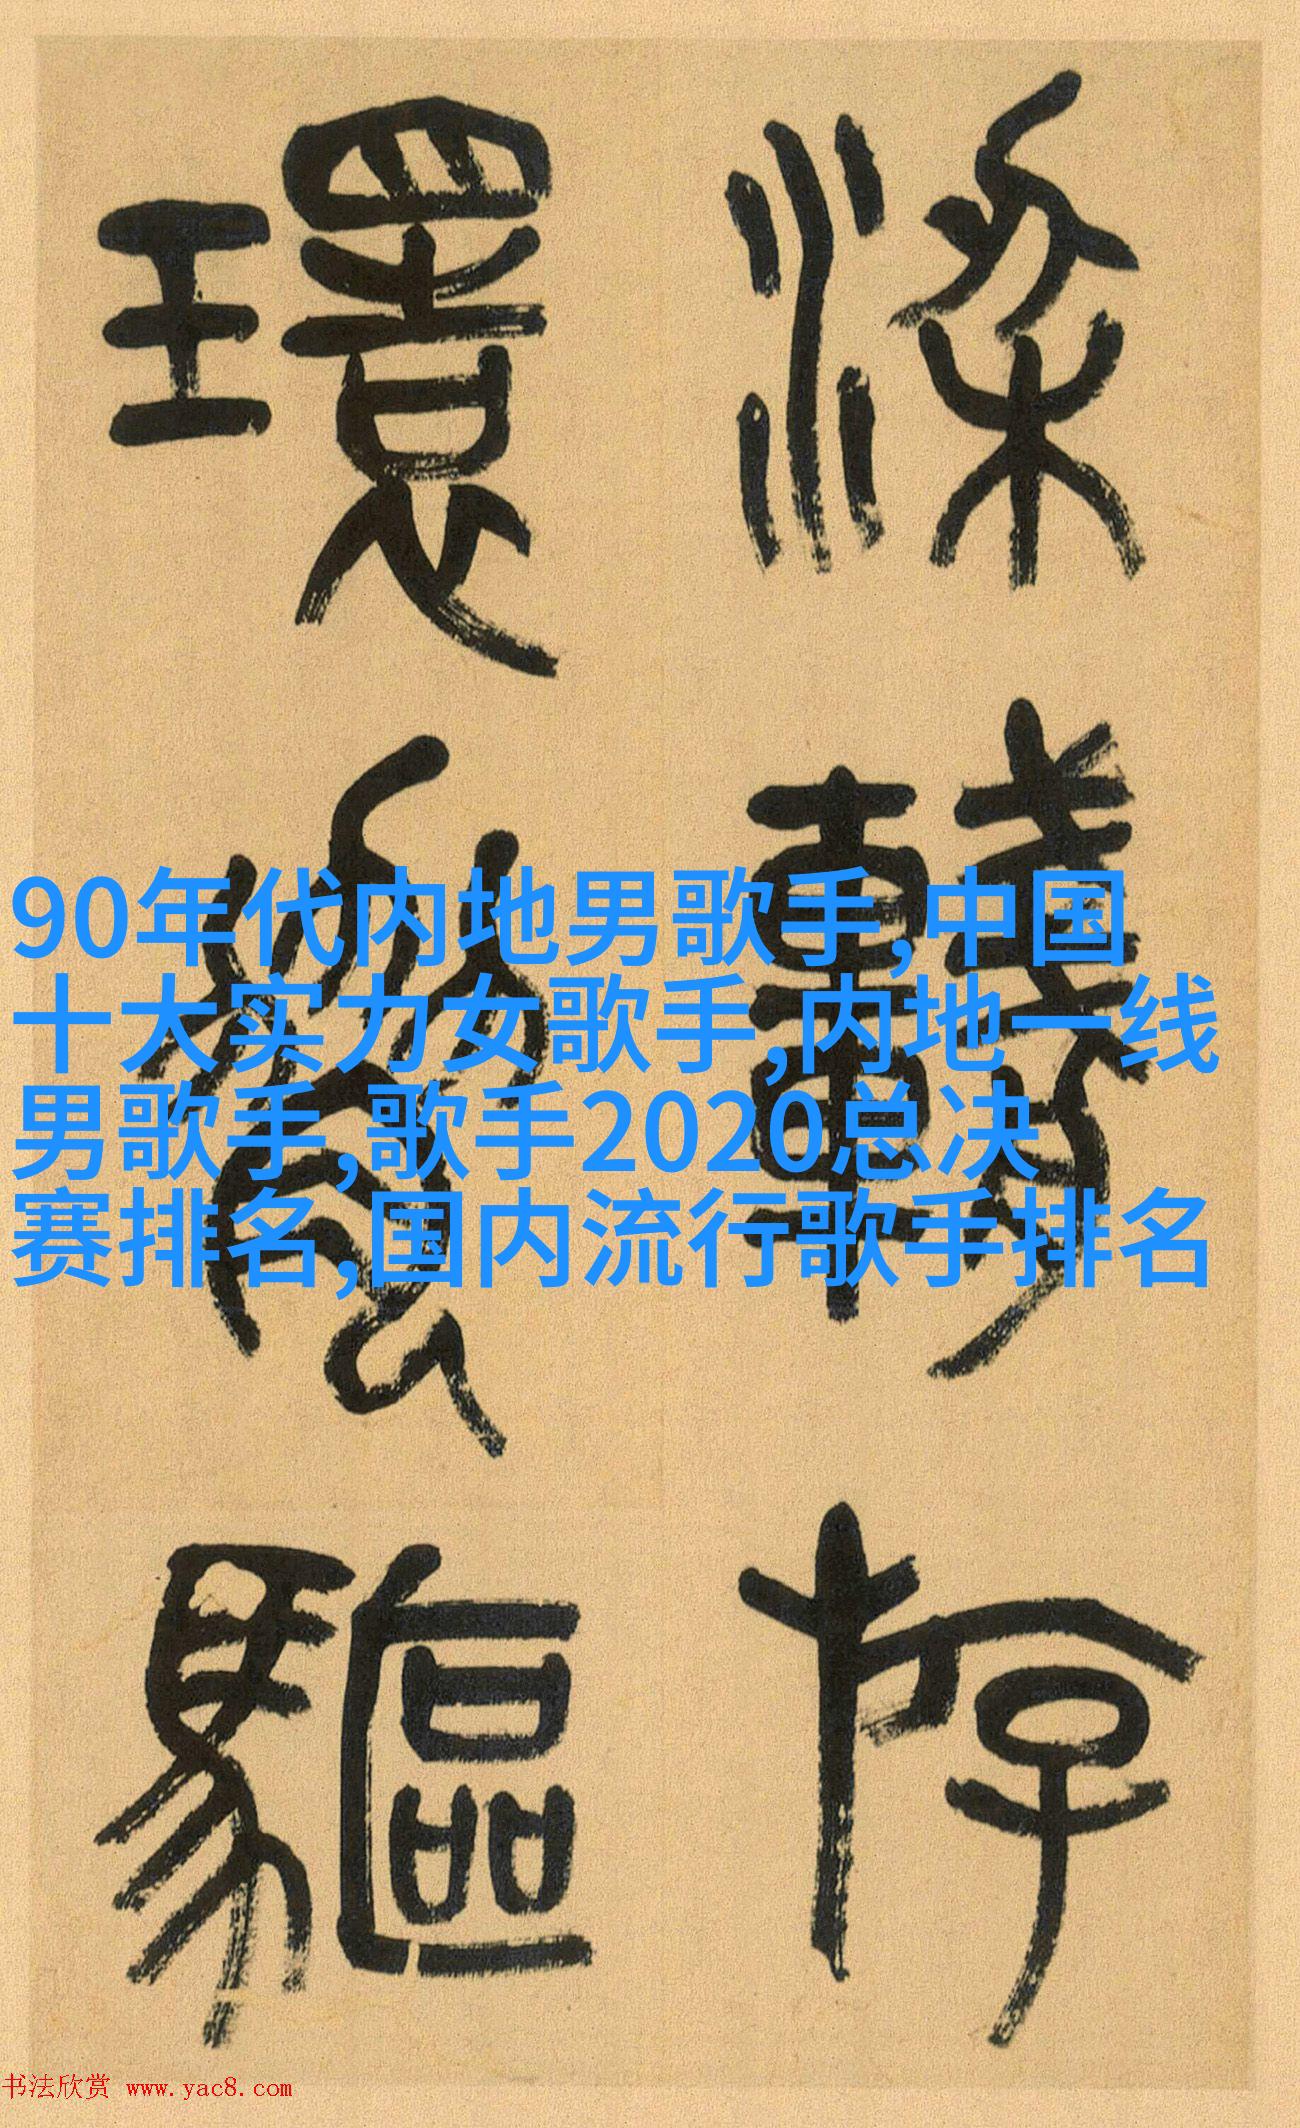 梁輈斿
環脅驅
90年代内地男歌手,中国
十大实力女歌手,内地一线
男歌手,歌手2020总决
赛排名,国内流行歌手排名
书法欣赏 www.yac8.com